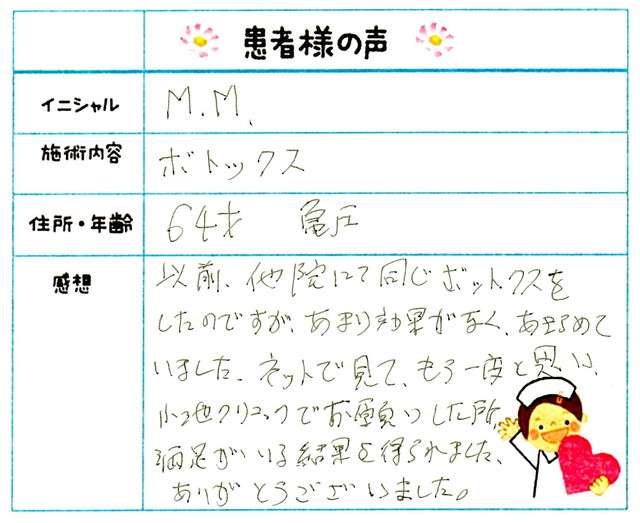 患者様の声
イニシャル
M.M.
施術内容
ボトックス
住所・年齢
64才
感想
以前、他院にて同じボットクスを
したのですが、あまり効果がなく、あきらめて
いました、ネットで見て、もう一度と思い、
クリニックでお願いした所、
満足がいる結果を得られました、
ありがとうございました。